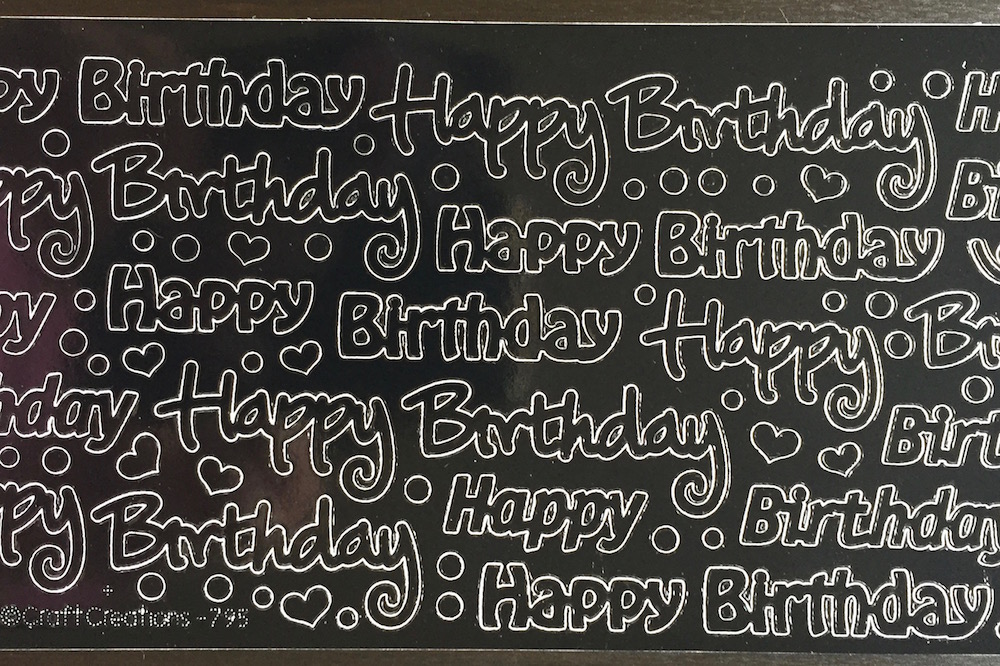 py Birthday Happy Birthday H
ppy Birthday Bi
Happy Birthday
py Happy Birthday Happy Bi
hday Happy Birthday Birt
ppy Birthday Happy Birthday
Happy Birthday
©CraftCreations - 795